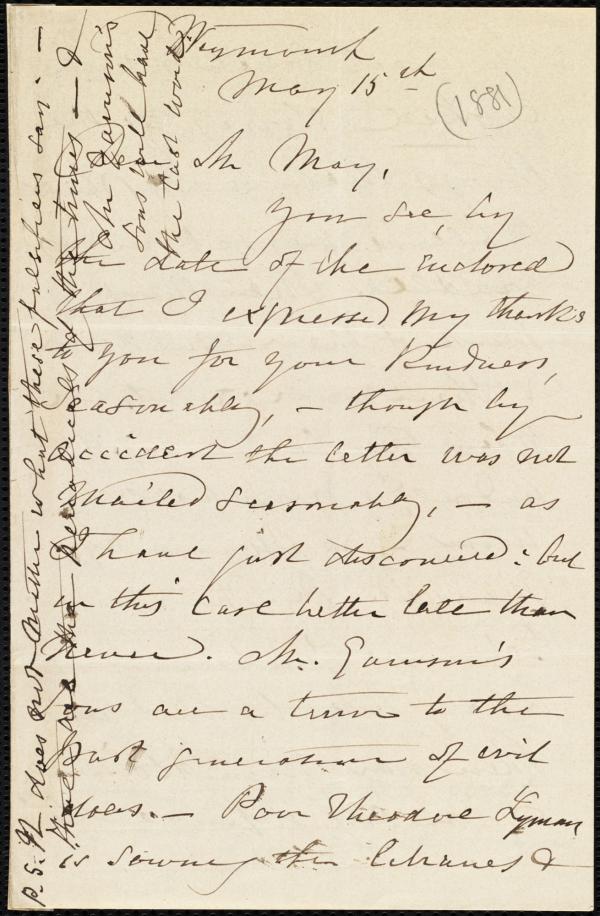 Weymouth
May 15th
(1881)
Dear Mr May,
You see, by
the date of the enclosed
that I expressed my thanks
to you for your kindness,
seasonably, — though by
accident the letter was not
mailed seasonably, — as
I have just discovered: but
in this case better late than
never. Mr. Garrison's
Sons are a terror to the
past generation of evil
doers. — Poor Theodore Lyman
is sowing the libraries &
P.S. It does not matter what these falsifiers say. —
the periodicals of the times — &
Mr Garrison's
Sons will have
the last word.